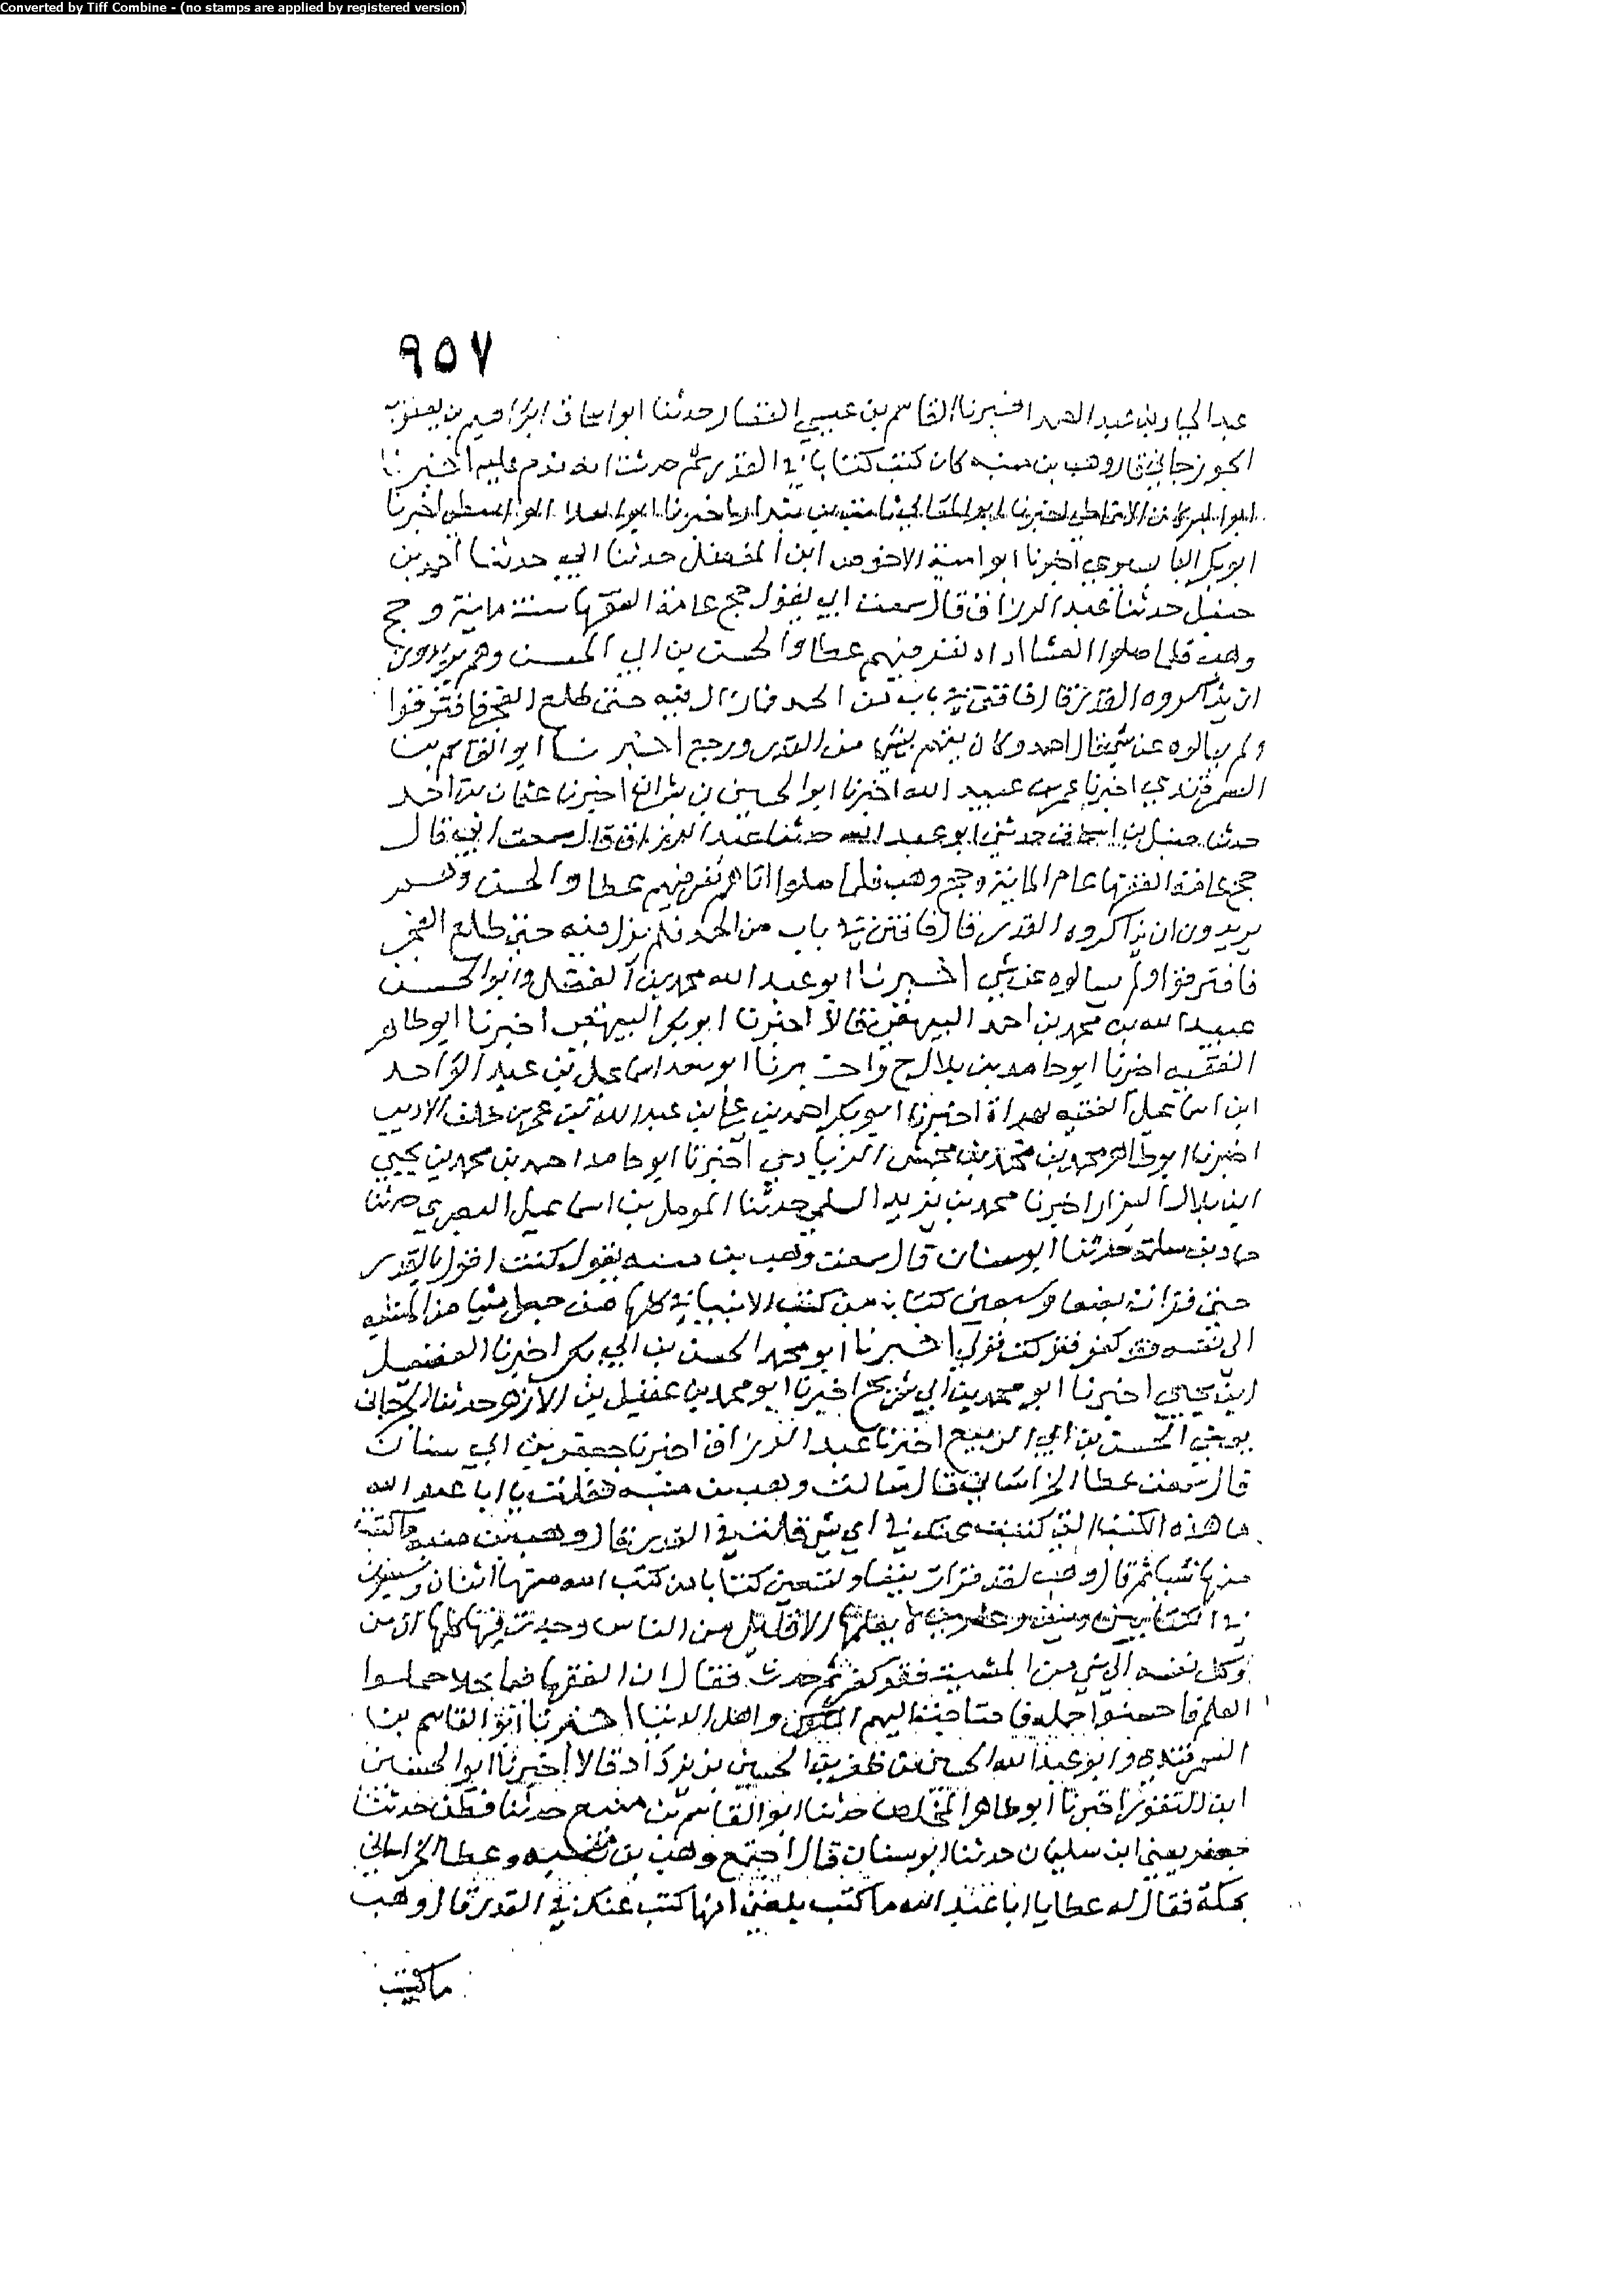 Converted by Tiff Combine - (no stamps are applied by registered version)
٩٥٧
عبد الجبار بن عبد الصمد اخبرنا القاسم بن عيسى القصار حدثنا ابو اسحاق ابراهيم بن يعقوب
الجوزجاني قال وهب بن منبه كان كتب كتابا في القدر ثم حدثت انه ندم عليه اخبرنا
ابو البركات الانماطي اخبرنا ابو المعالي ثابت بن بندار اخبرنا ابو العلا الواسطي اخبرنا
ابو بكر البابسيري اخبرنا ابو امية الاحوص ابن المفضل حدثنا ابي حدثنا احمد بن
حنبل حدثنا عبد الرزاق قال سمعت ابي يقول حج عامة الفقها سنة ماية وحج
وهب فلما صلوا العشا اتاه نفر فيهم عطا والحسن بن ابي الحسن وهم يريدون
ان يذاكروه القدر قال فافتن في باب من الحمد فما زال فيه حتى طلع الفجر فافترقوا
ولم يسالوه عن شي قال احمد وكان يتهم بشي من القدر ورجع اخبرنا ابو القاسم بن
السمرقندي اخبرنا عمر بن عبيد الله اخبرنا ابو الحسين بن بشران اخبرنا عثمان بن احمد
حدثنا حنبل بن اسحاق حدثني ابو عبد الله حدثنا عبد الرزاق قال سمعت ابي قال
حج عامة الفقها عام الماية وحج وهب فلما صلوا اتاهم نفر فيهم عطا والحسن وهم
يريدون ان يذاكروه القدر قال فافتن في باب من الحمد فلم يزل فيه حتى طلع الفجر
فافترقوا ولم يسالوه عن شي اخبرنا ابو عبد الله محمد بن الفضل وابو الحسن
عبيد الله بن محمد بن احمد البيهقي قالا اخبرنا ابو بكر البيهقي اخبرنا ابو طاهر
الفقيه اخبرنا ابو حامد بن بلال ح واخبرنا ابو سعد اسماعيل بن عبد الواحد
ابن اسماعيل الفقيه بهراة اخبرنا ابو بكر احمد بن علي بن عبد الله بن عمر بن خلف الاديب
اخبرنا ابو طاهر محمد بن محمد بن محمش الزيادي اخبرنا ابو حامد احمد بن محمد بن يحيى
ابن بلال البزار اخبرنا محمد بن يزيد السلمي حدثنا المومل بن اسماعيل البصري حدثنا
حماد بن سلمة حدثنا ابو سنان قال سمعت وهب بن منبه يقول كنت اقول بالقدر
حتى قرات بضعا وسبعين كتابا من كتب الانبيا في كلها من جعل شيا من المشية
الى نفسه فقد كفر فتركت قولي اخبرنا ابو محمد الحسن بن ابي بكر اخبرنا الفضيل
ابن يحيى اخبرنا ابو محمد بن ابي شريح اخبرنا ابو محمد بن عقيل بن الازهر حدثنا الجرجاني
يعني الحسن بن ابي الربيع اخبرنا عبد الرزاق اخبرنا جعفر بن ابي سنان
قال سمعت عطا الخراساني قال سالت وهب بن منبه فقلت يا ابا عبد الله
ما هذه الكتب التي كتبت عنك في اي شي قلت في القدر فقال وهب بن منبه ما كتبت
منها شيا ثم قال وهب لقد قرات نيفا وتسعين كتابا من كتب الله منها اثنان وسبعون
في الكتابيين لا يعلمها الا قليل من الناس وجدت فيها كلها ان من
وكل نفسه الى شي من المشية فقد كفر ثم حدث فقال ان الفقها فيما خلا حملوا
العلم فاحسنوا حمله فاحتاجت اليهم الملوك واهل الدنيا اخبرنا ابو القاسم بن
السمرقندي وابو عبد الله الحسين بن ظفر بن الحسين بن يزداد قالا اخبرنا ابو الحسين
ابن النقور اخبرنا ابو طاهر المخلص حدثنا ابو القاسم بن منيع حدثنا قطن حدثنا
جعفر يعني ابن سليمان حدثنا ابو سنان قال اجتمع وهب بن منبه وعطا الخراساني
بمكة فقال له عطا يا ابا عبد الله ما كتب بلغني انها كتب عنك في القدر فقال وهب
ما كتبت